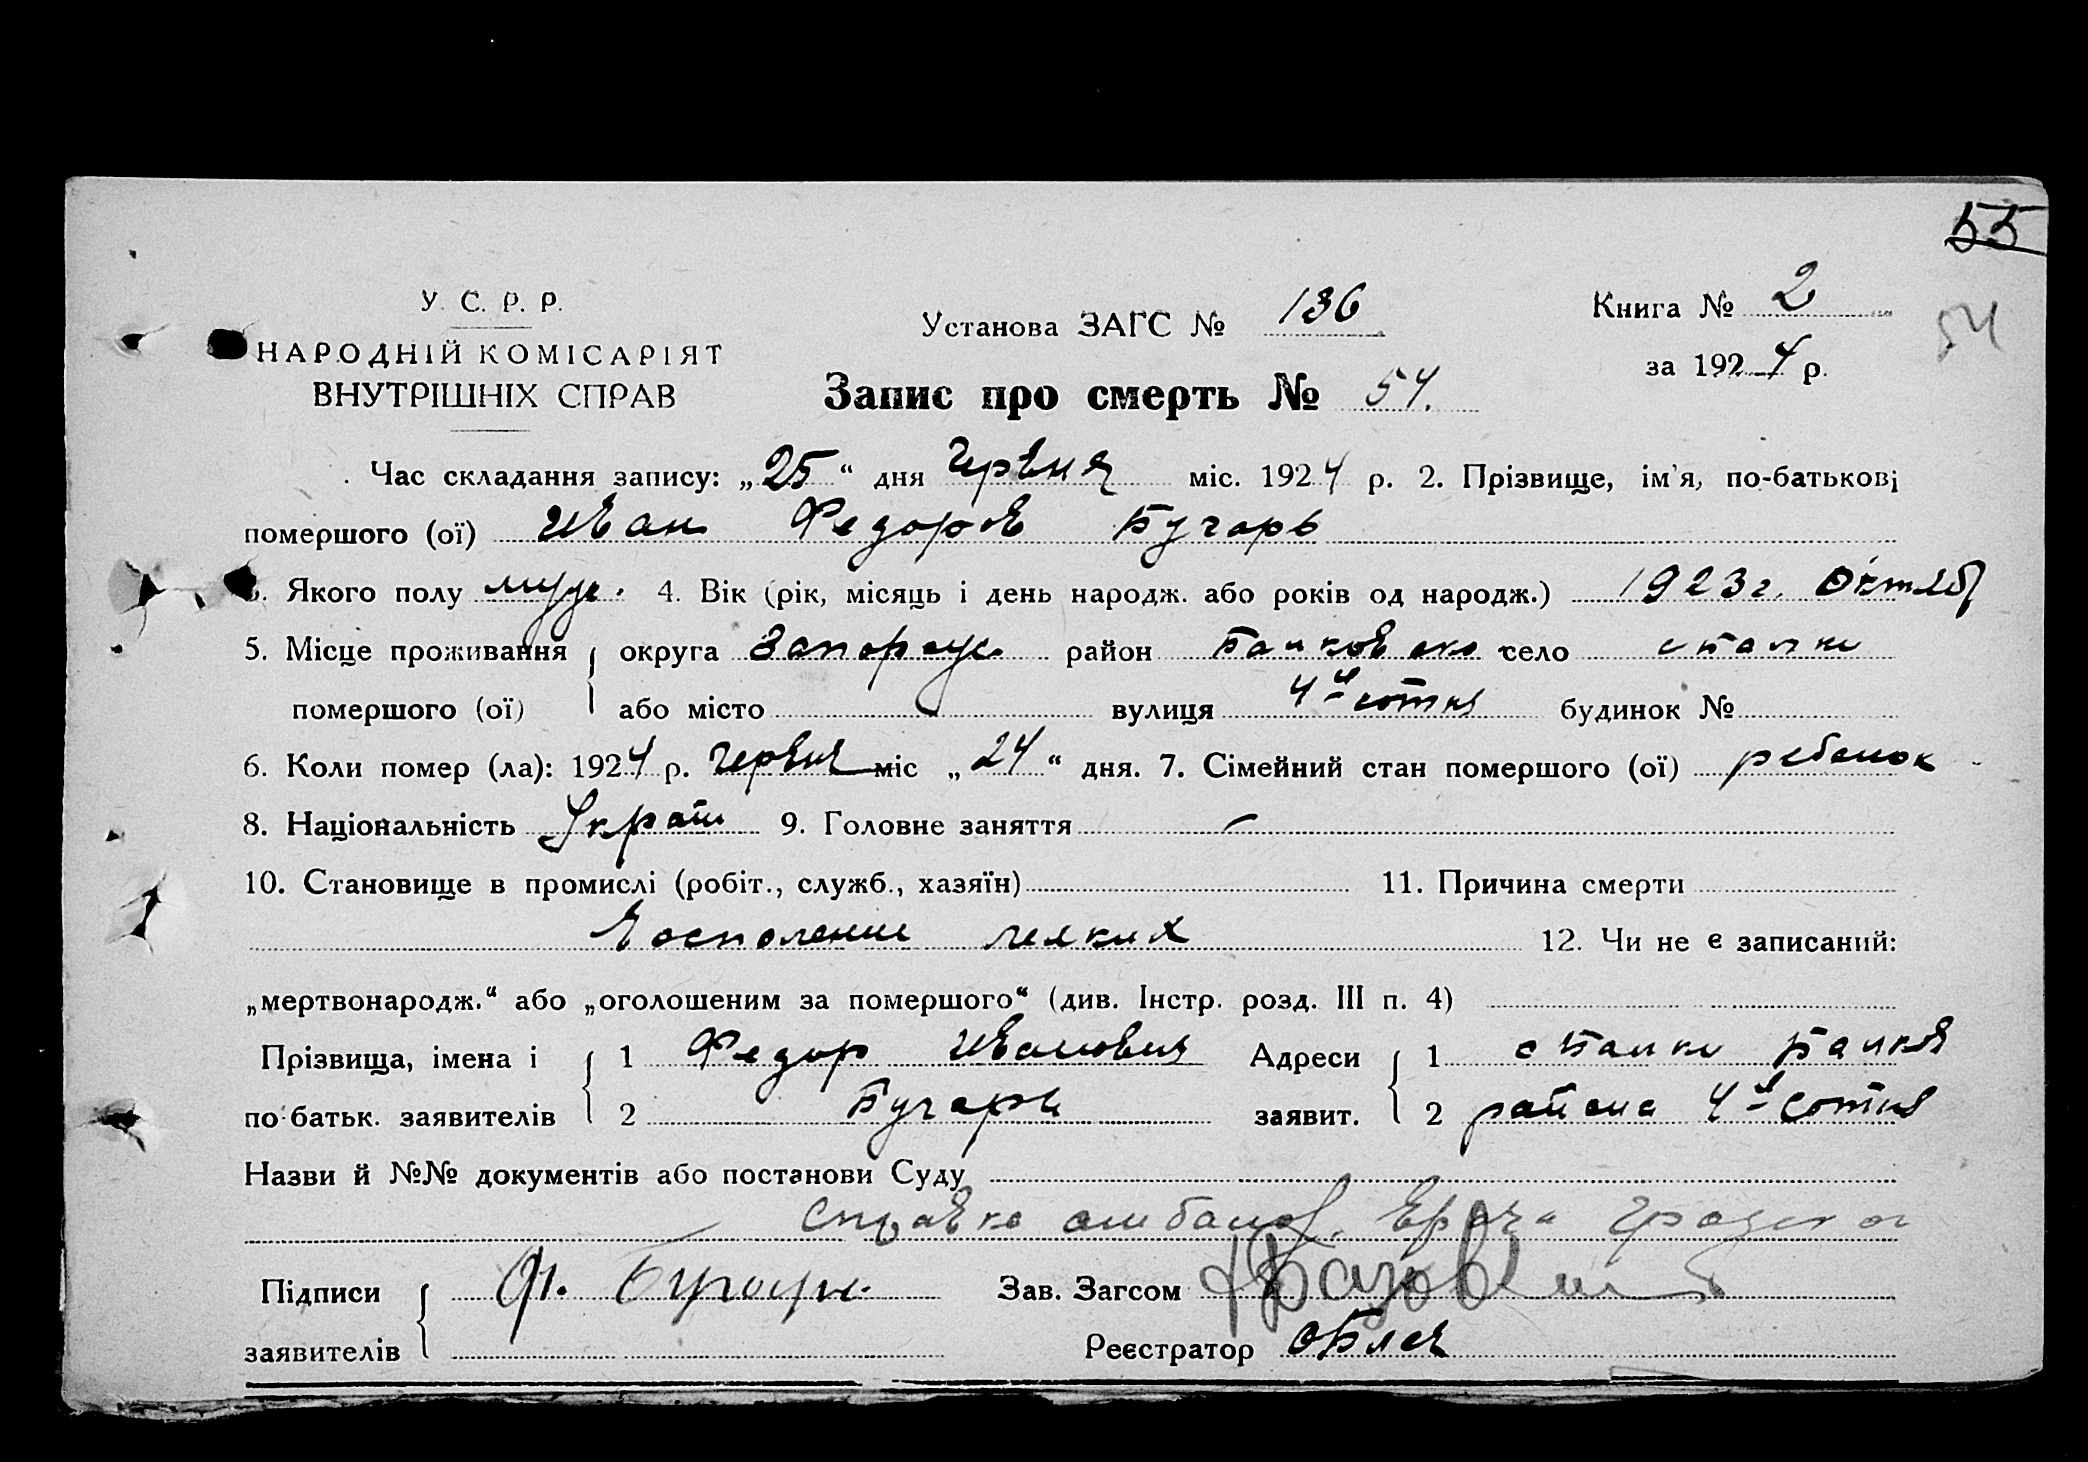 55
У. С. Р. Р.
НАРОДНІЙ КОМІСАРІЯТ
ВНУТРІШНІХ СПРАВ
Установа ЗАГС № 136
Книга № 2
за 1924 р.
54
Запис про смерть № 54.
Час складання запису: „25“ дня Червня міс. 1924 р. 2. Прізвище, ім'я, по-батькові
помершого (ої) Иван Федоров Бугарь
3. Якого полу муж. 4. Вік (рік, місяць і день народж. або років од народж.) 1923 г. Октяб
5. Місце проживання округа Запорож район Балковско село с Балки
помершого (ої) або місто вулиця 4я сотня будинок №
6. Коли помер (ла): 1924 р. Червня міс „24“ дня. 7. Сімейний стан помершого (ої) ребенок
8. Національність Украін 9. Головне заняття —
10. Становище в промислі (робіт., служб., хазяїн) 11. Причина смерти
Восполение легких 12. Чи не є записаний:
„мертвонародж.“ або „оголошеним за помершого“ (див. Інстр. розд. III п. 4)
Прізвища, імена і 1 Федор Иванович Адреси 1 с Балки Балков
по-батьк. заявителів 2 Бугарь заявит. 2 района 4я сотня
Назви й №№ документів або постанови Суду
Справка амбалат. Врача
Підписи Ф. Зав. Загсом
заявителів Реєстратор